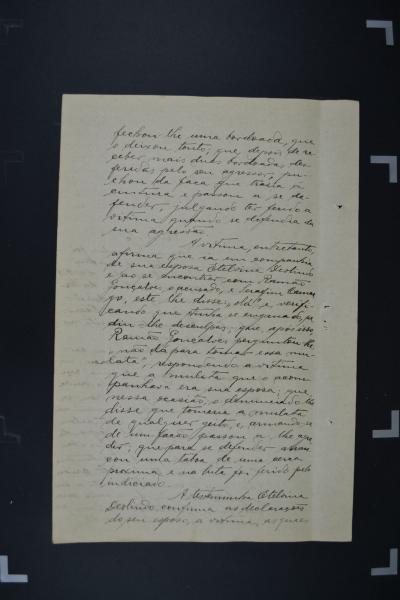 fechou-lhe uma bordoada, que
o deixou tonto; que, depois de re-
ceber mais duas bordoadas, des-
feridas pelo seu agressor, pu-
chou da faca que trazia á
cintura e passou a se de-
fender, julgando ter ferido a
victima quando se defendia da
sua agressão.
A victima, entretanto,
afirma que ia em companhia
de sua esposa Etelvina Deolindo
e ao se encontrar com Ramão
Gonçalves, o acusado, e Serafim
go, este lhe disse, olá e verifi-
cando que tinha se enganado, pe-
diu-lhe desculpas; que, após isso,
Ramão Gonçalves perguntou-lhe
"não dá para tomar essa mu-
lata", respondendo a victima
que a mulata que o acom-
panhava era sua esposa; que
nessa ocasião, o denunciado lhe
disse que tomaria a mulata
de qualquer geito, e, armando-se
de um facão passou a lhe agre-
dir; que para se defender
com uma taboa de uma cerca
proxima e na luta foi ferido pelo
indiciado.
A testemunha Etelvina
Deolindo, confirma as declarações
do seu esposo, a victima, as quaes